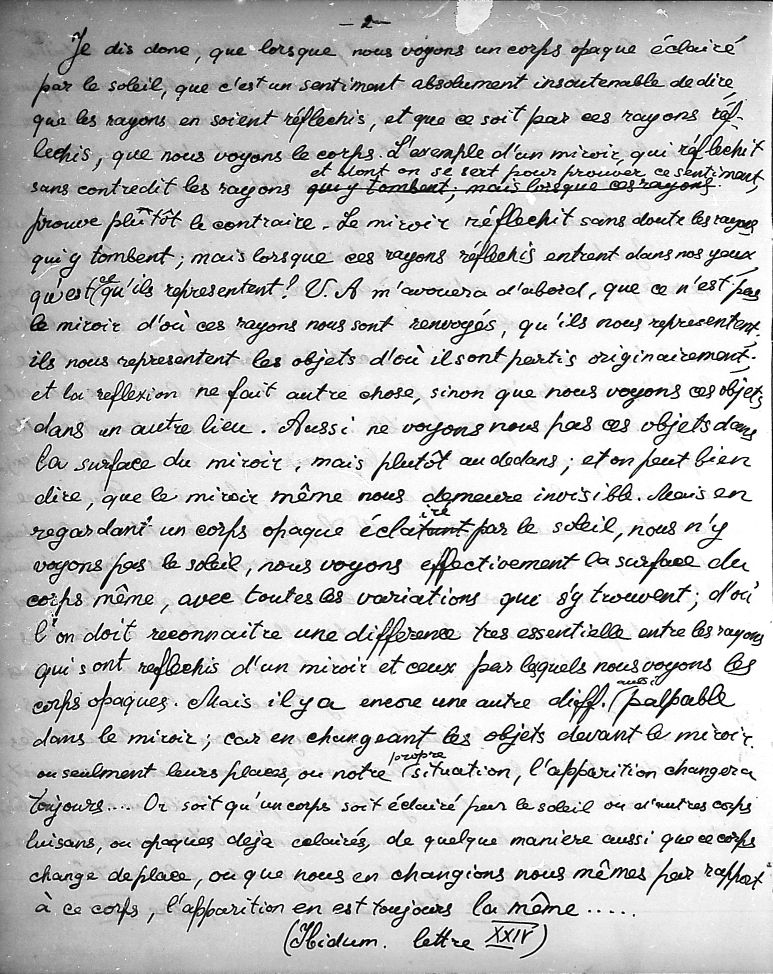 - 2 -
Je dis donc, que lorsque nous voyons un corps opaque éclairé
par le soleil, que c'est un sentiment absolument insoutenable de dire
que les rayons en soient réflechis, et que ce soit par ces rayons réf-
lechis, que nous voyons le corps. L'exemple d'un miroir, qui réflechit
et dont on se sert pour prouver ce sentiment,
sans contredit les rayons qui y tombent; mais lorsque ces rayons.
prouve plutôt le contraire. Le miroir réflechit sans doute les rayons
qui y tombent; mais lorsque ces rayons réflechis entrent dans nos yeux
qu'est ce qu'ils representent! V. A m'avouera d'abord, que ce n'est pas
le miroir d'où ces rayons nous sont renvoyés, qu'ils nous representent.
ils nous representent les objets d'où il sont partis originairement;
et la reflexion ne fait autre chose, sinon que nous voyons ces objets
dans un autre lieu. Aussi ne voyons nous pas ces objets dans
la surface du miroir, mais plutôt au dedans; et on peut bien
dire, que le miroir même nous demeure invisible. Mais en
regardant un corps opaque éclairé par le soleil, nous n'y
voyons pas le soleil, nous voyons effectivement la surface du
corps même, avec toutes les variations qui s'y trouvent; d'où
l'on doit reconnaitre une difference tres essentielle entre les rayons
qui sont reflechis d'un miroir et ceux par lesquels nous voyons les
corps opaques. Mais il y a encore une autre diff. aussi palpable
dans le miroir; car en changeant les objets devant le miroir.
ou seulment leurs places, ou notre propre situation, l'apparition changera
toujours.... Or soit qu'un corps soit éclairé par le soleil ou d'autres corps
luisans, ou opaques deja eclairés, de quelque maniere aussi que ce corps
change de place, ou que nous en changions nous mêmes par rapport
à ce corps, l'apparition en est toujours la même .....
(Ibidum. lettre XXIV)